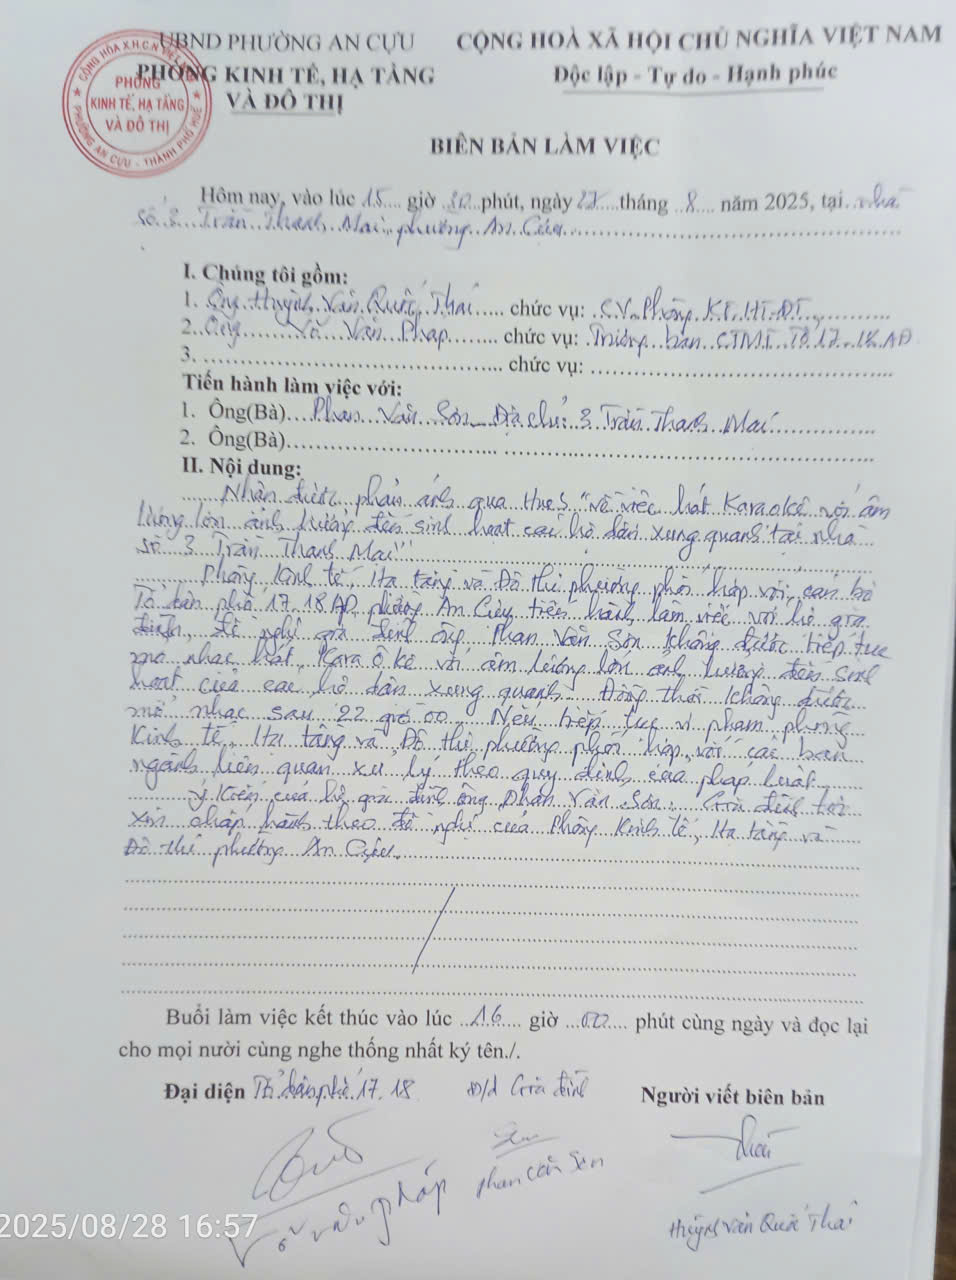 UBND PHƯỜNG AN CỰU
CỘNG HOÀ XÃ HỘI CHỦ NGHĨA VIỆT NAM
PHÒNG KINH TẾ, HẠ TẦNG
VÀ ĐÔ THỊ
Độc lập - Tự do - Hạnh phúc
CỘNG HÒA X.H.C.N VIỆT NAM
PHÒNG
KINH TẾ, HẠ TẦNG
VÀ ĐÔ THỊ
PHƯỜNG AN CỰU - THÀNH PHỐ HUẾ
BIÊN BẢN LÀM VIỆC
Hôm nay, vào lúc 15 giờ 30 phút, ngày 27 tháng 8 năm 2025, tại nhà
Số 3 Trần Thanh Mai, phường An Cựu
I. Chúng tôi gồm:
1. Ông Huỳnh Văn Quốc Thái chức vụ: C.V. Phòng KT, HT-ĐT
2. Ông Võ Văn Pháp chức vụ: Trưởng ban CTMT Tổ 17-18 AĐ
3. chức vụ:
Tiến hành làm việc với:
1. Ông(Bà) Phan Văn Sơn Địa chỉ: 3 Trần Thanh Mai
2. Ông(Bà)
II. Nội dung:
Nhận được phản ánh qua HueS "về việc hát Karaokê với âm
lượng lớn ảnh hưởng đến sinh hoạt các hộ dân xung quanh tại nhà
số 3 Trần Thanh Mai"
Phòng Kinh tế, Hạ tầng và Đô thị phường phối hợp với cán bộ
Tổ dân phố 17, 18 AĐ, phường An Cựu tiến hành làm việc với hộ gia
đình, đề nghị gia đình ông Phan Văn Sơn không được tiếp tục
mở nhạc hát Kara ô kê với âm lượng lớn ảnh hưởng đến sinh
hoạt của các hộ dân xung quanh. Đồng thời không được
mở nhạc sau 22 giờ 00. Nếu tiếp tục vi phạm phòng
Kinh tế, Hạ tầng và Đô thị phường phối hợp với các ban
ngành liên quan xử lý theo quy định của pháp luật.
Ý kiến của hộ gia đình ông Phan Văn Sơn: Gia đình tôi
xin chấp hành theo đề nghị của Phòng Kinh tế, Hạ tầng và
Đô thị phường An Cựu.
Buổi làm việc kết thúc vào lúc 16 giờ 00 phút cùng ngày và đọc lại
cho mọi nười cùng nghe thống nhất ký tên./.
Đại diện Tổ dân phố 17, 18
Đ/d Gia đình
Người viết biên bản
Võ Văn Pháp
Phan Văn Sơn
Thái
Huỳnh Văn Quốc Thái
2025/08/28 16:57